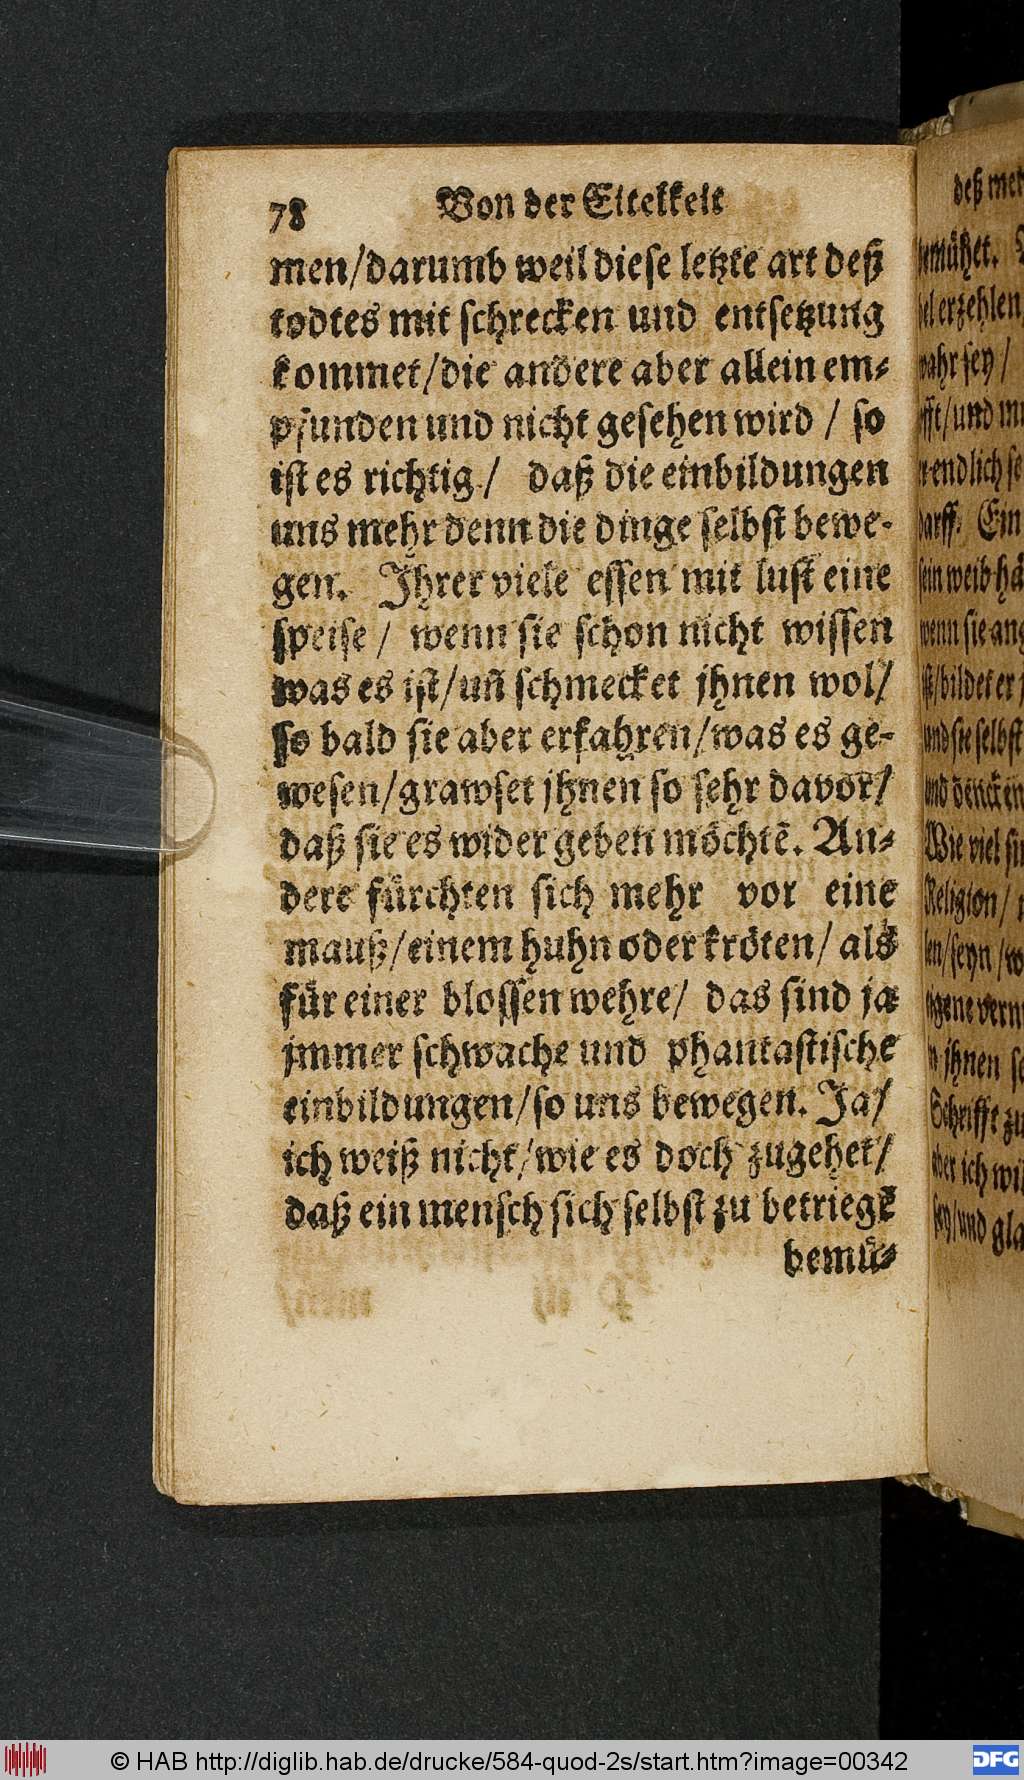 78 Von der Eitelkeit
men/darumb weil diese letzte art deß
todtes mit schrecken und entsetzung
kommet/die andere aber allein em-
pfunden und nicht gesehen wird / so
ist es richtig / daß die einbildungen
uns mehr denn die dinge selbst bewe-
gen. Ihrer viele essen mit lust eine
speise / wenn sie schon nicht wissen
was es ist/uñ schmecket jhnen wol/
so bald sie aber erfahren/was es ge-
wesen/grawset jhnen so sehr davor/
daß sie es wider geben möchtẽ. An-
dere fürchten sich mehr vor eine
mauß/einem huhn oder kröten/ als
für einer blossen wehre/ das sind ja
jmmer schwache und phantastische
einbildungen/so uns bewegen. Ja/
ich weiß nicht/wie es doch zugehet/
daß ein mensch sich selbst zu betriegẽ
bemü-
deß
bemühet.
erzehlen
wahr sey /
/und
endlich
darff. Ein
sein weib
wenn sie
/bildet er
und sie selbst
und dencken
Wie viel
Religion/
/seyn /
eigene
jhnen
Schrifft zu
aber ich
sey/und
© HAB http://diglib.hab.de/drucke/584-quod-2s/start.htm?image=00342
DFG